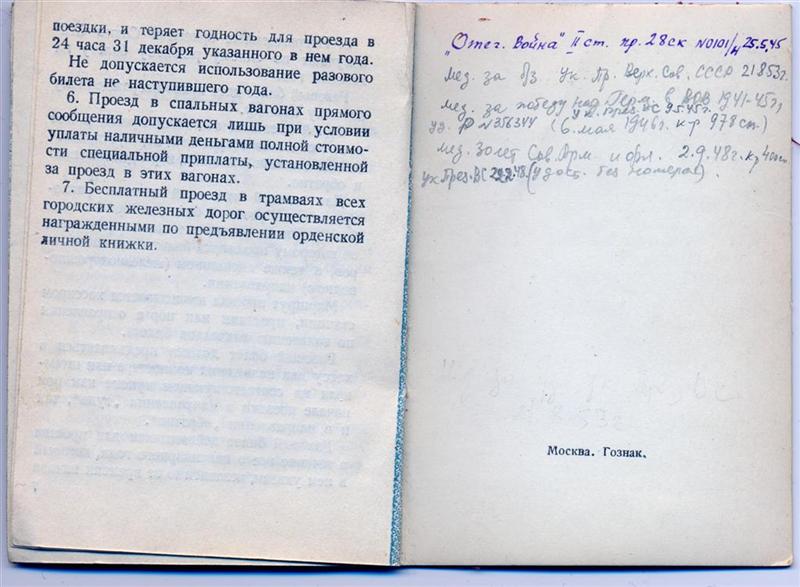 поездки, и теряет годность для проезда в
24 часа 31 декабря указанного в нем года.
Не допускается использование разового
билета не наступившего года.
6. Проезд в спальных вагонах прямого
сообщения допускается лишь при условии
уплаты наличными деньгами полной стоимо-
сти специальной приплаты, установленной
за проезд в этих вагонах.
7. Бесплатный проезд в трамваях всех
городских железных дорог осуществляется
награжденными по предъявлении орденской
личной книжки.
„Отеч. Война" II ст. пр. 28ск N0101/н 25.5.45
мед. за Ук. Пр. Верх. Сов. СССР
мед. за победу над Герм. в ВОВ 1941-45г,
ук. През. ВС 9.5.45г.
уд. Р N356344 (6 мая 1946г. к-р 978 сп)
мед. 30 лет Сов. Арм. и фл. 2.9.48г.
ук През. ВС (удост. без номеров).
Москва. Гознак.